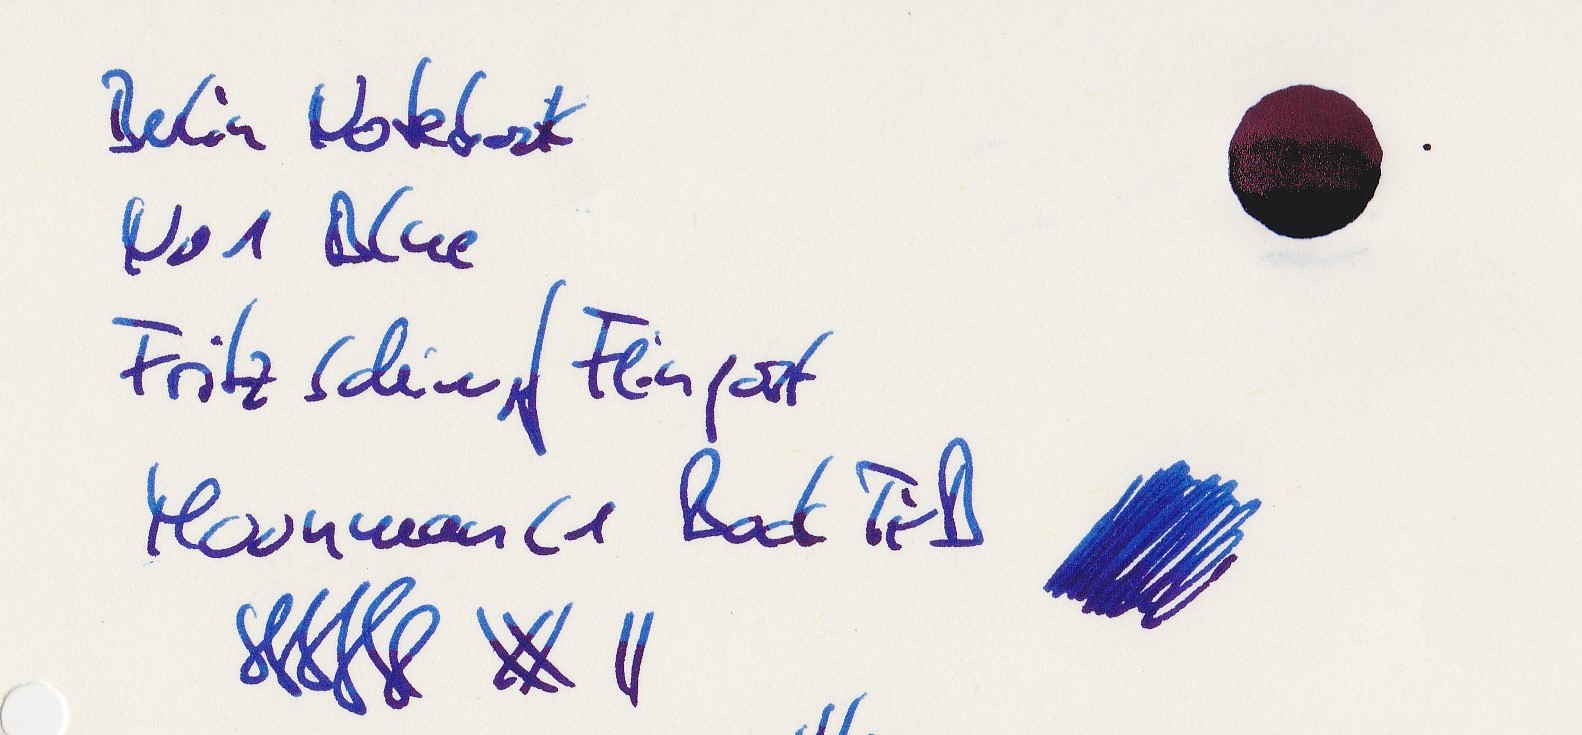 Berlin Notebook
No 1 Blue
Fritz Schimpf Feinpost
Moonman C1 Bock Ti-B